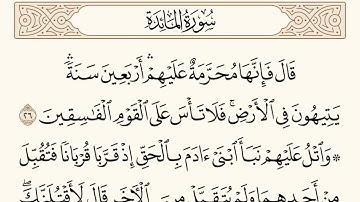 سُورَةُ المَائِدَة
قَالَ فَإِنَّهَا مُحَرَّمَةٌ عَلَيْهِمْ ۛ أَرْبَعِينَ سَنَةً ۛ
يَتِيهُونَ فِي ٱلْأَرْضِ ۚ فَلَا تَأْسَ عَلَى ٱلْقَوْمِ ٱلْفَـٰسِقِينَ ٢٦
۞ وَٱتْلُ عَلَيْهِمْ نَبَأَ ٱبْنَىْ ءَادَمَ بِٱلْحَقِّ إِذْ قَرَّبَا قُرْبَانًا فَتُقُبِّلَ
مِنْ أَحَدِهِمَا وَلَمْ يُتَقَبَّلْ مِنَ ٱلْـَٔاخَرِ قَالَ لَأَقْتُلَنَّكَ ۖ